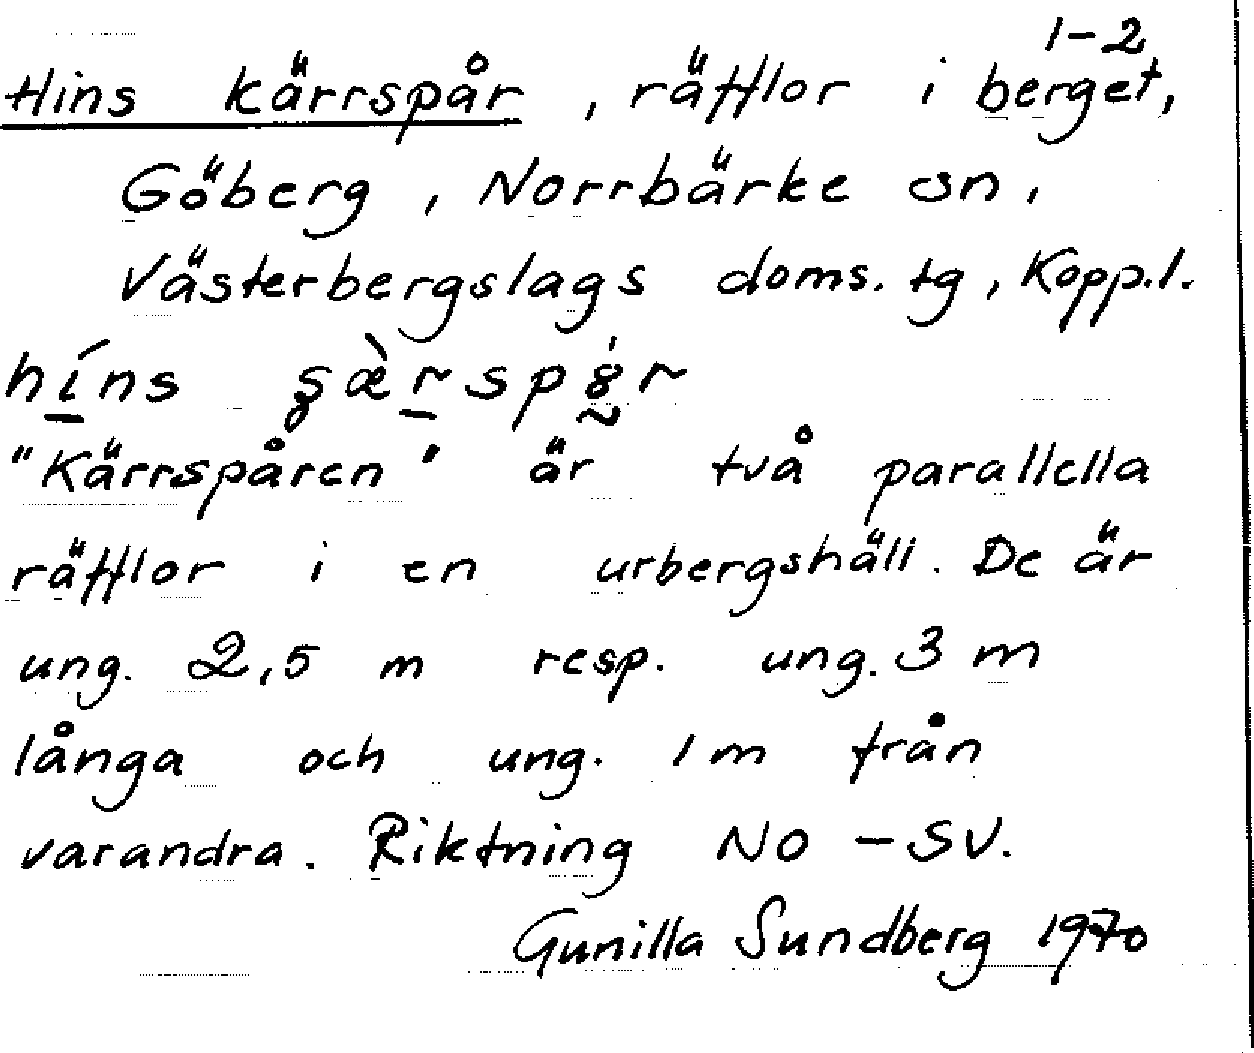 1-2
Hins kärrspår, räfflor i berget,
Göberg, Norrbärke sn,
Västerbergslags doms. tg, Kopp.l.
híns
"Kärrspåren" är två parallella
räfflor i en urbergshäll. De är
ung. 2,5 m resp. ung. 3 m
långa och ung. 1 m från
varandra. Riktning NO - SV.
Gunilla Sundberg 1970